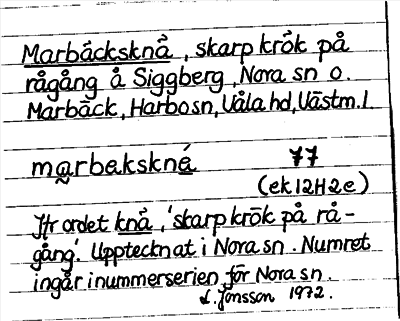 Marbäcksknä, skarp krök på
rågång å Siggberg, Nora sn o.
Marbäck, Harbo sn, Våla hd, Västm. l
marbakskné 77
(ek 12H2e)
Jfr ordet knä, 'skarp krök på rå-
gång'. Upptecknat i Nora sn. Numret
ingår i nummerserien för Nora sn.
L. Jonsson 1972.